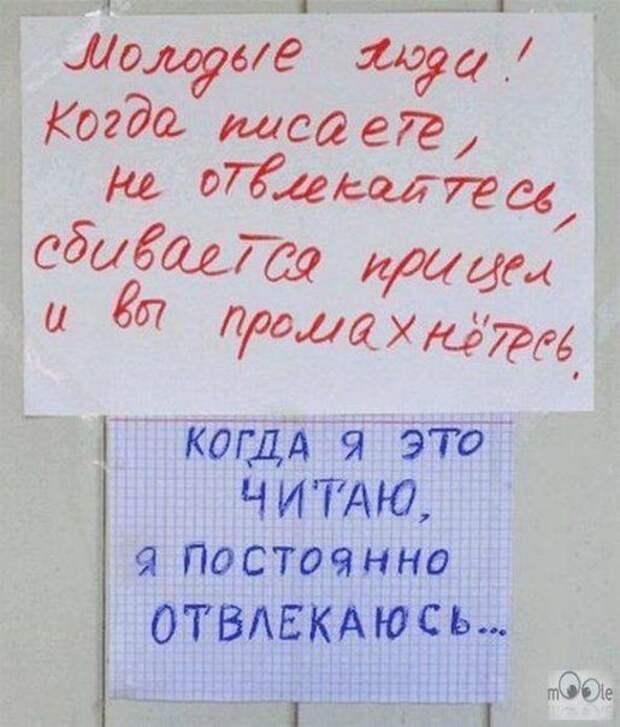 Молодые люди!
Когда писаете,
не отвлекайтесь,
сбивается прицел
и вы промахнётесь.
КОГДА Я ЭТО
ЧИТАЮ,
Я ПОСТОЯННО
ОТВЛЕКАЮСЬ...
mOOle